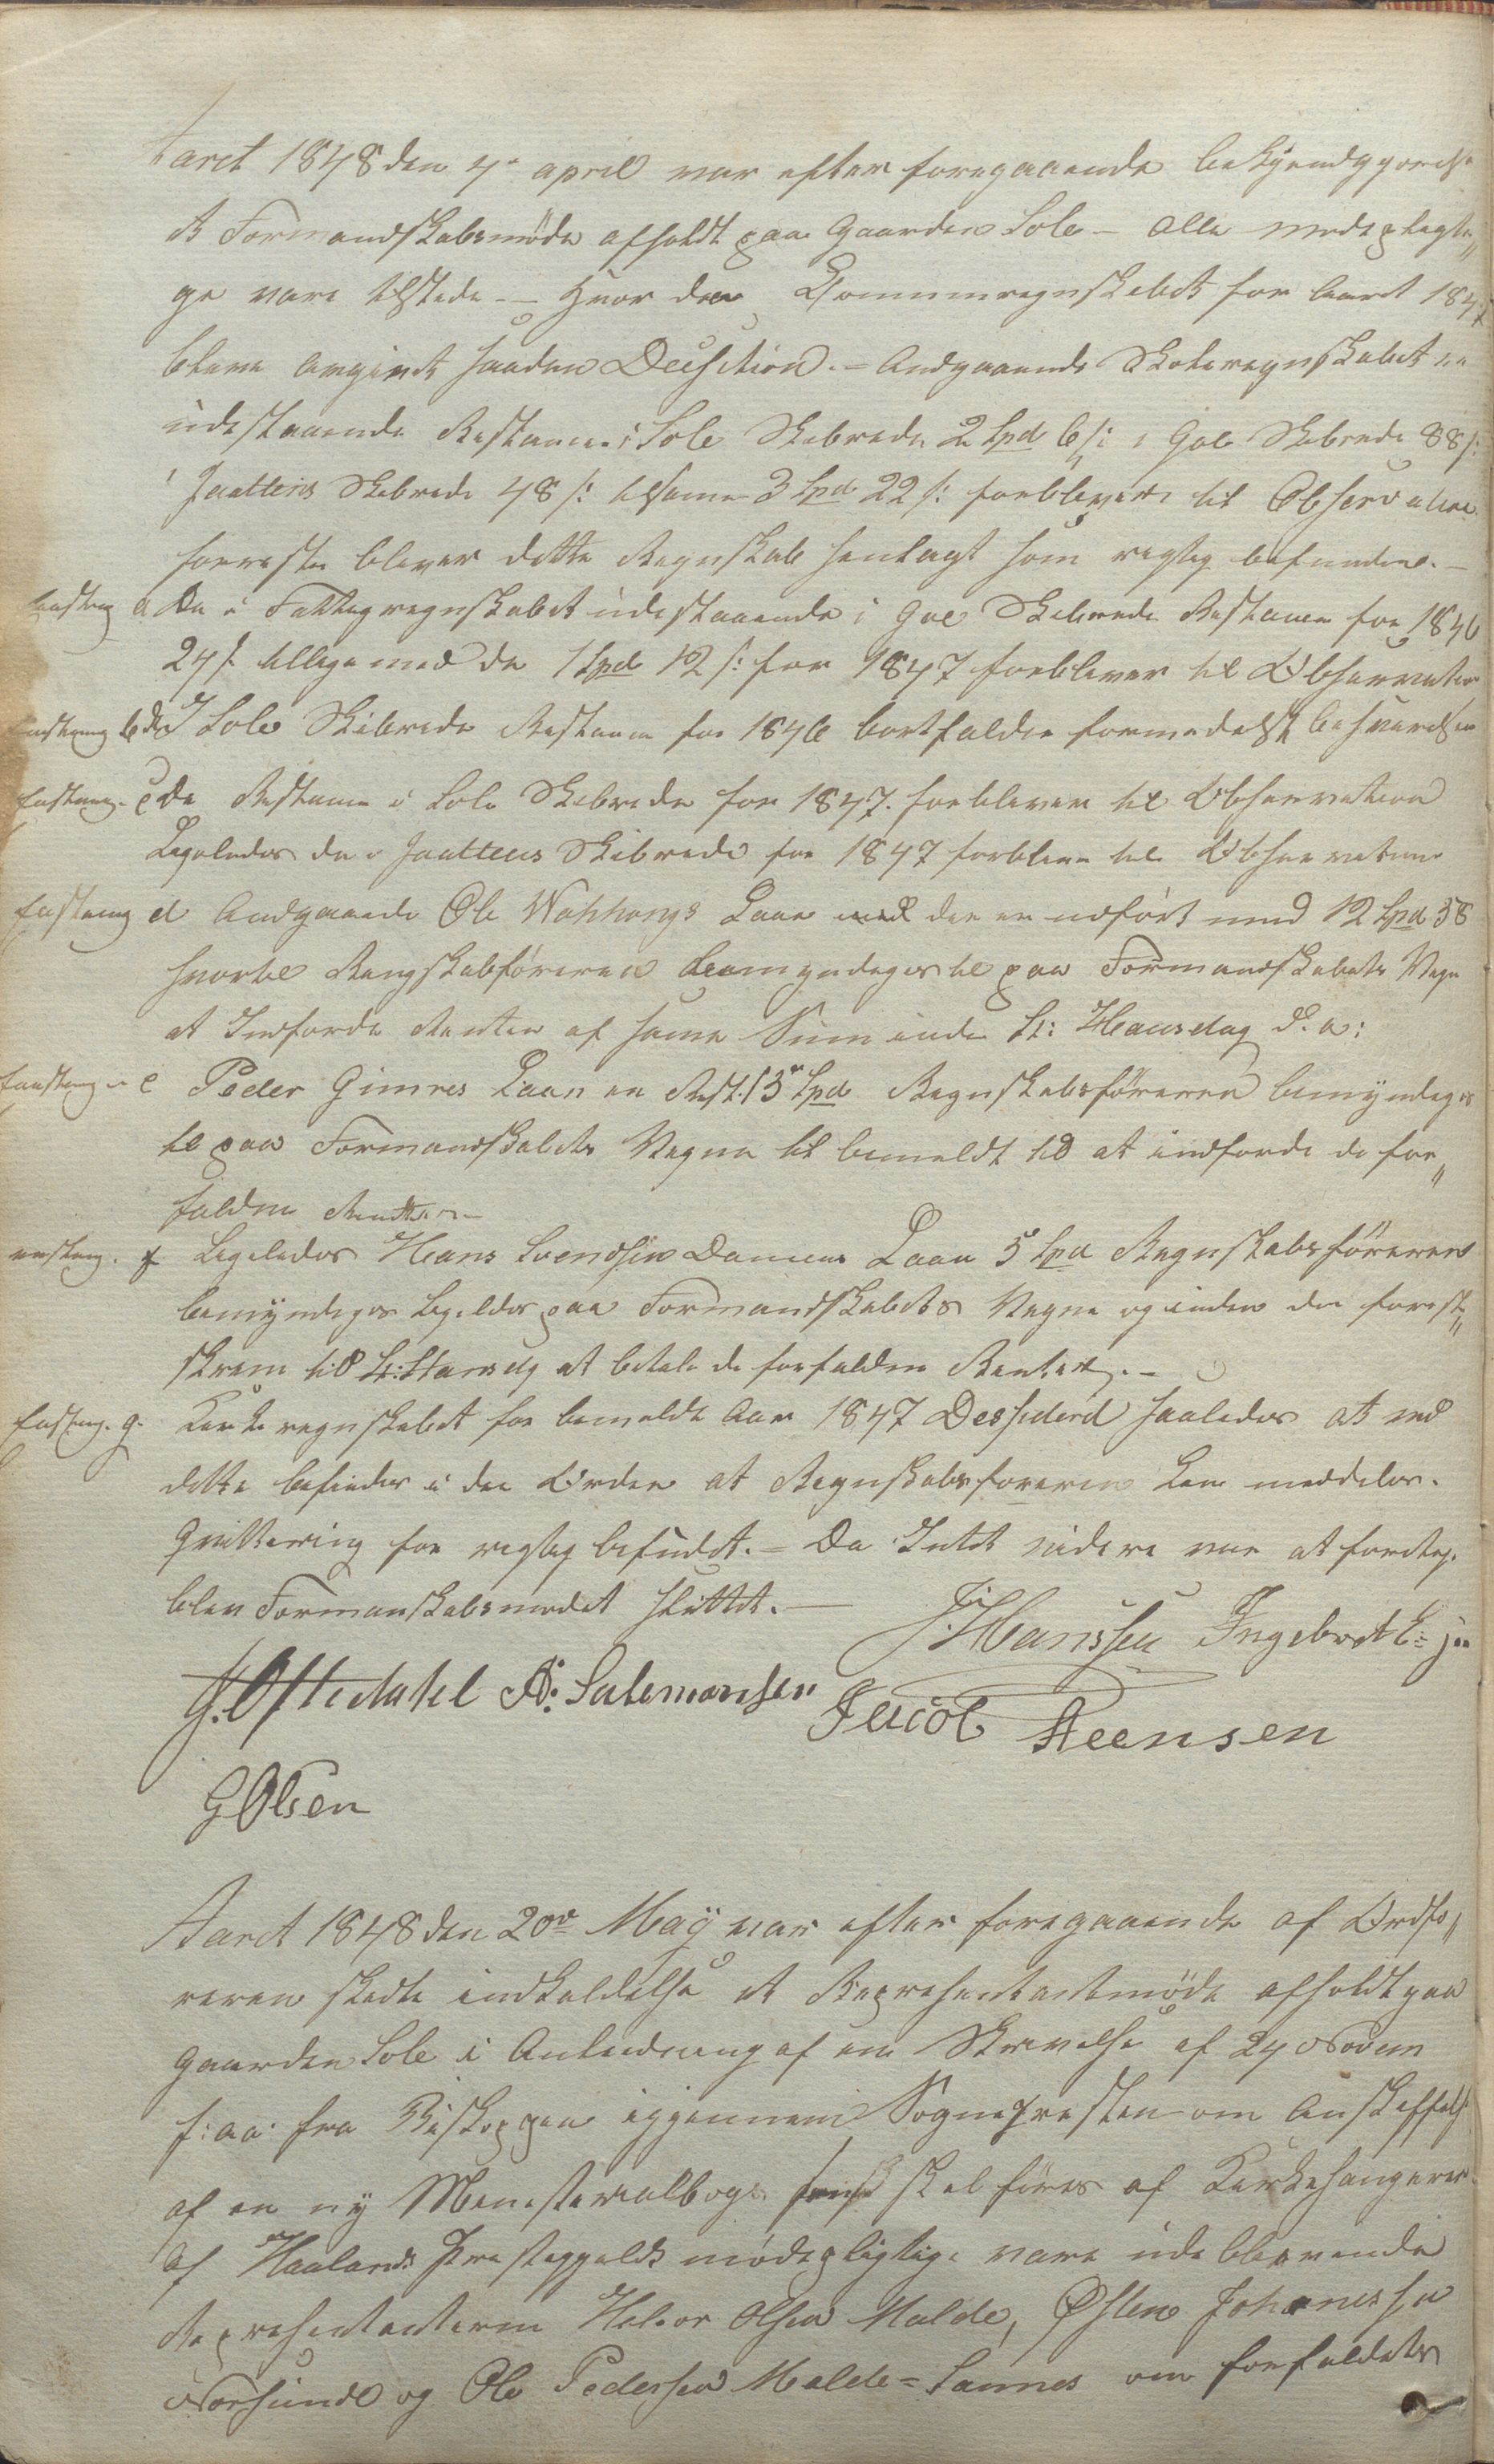 Aaret 1848 den 4de april var efter foregaaende bekjendtgjørelse
et Formandskabsmøde afholdt paa Gaarden Sole – alle mødepligti„
ge vare tilstede – Hvor da Communregnskabet for Aaret 1847
bleve avgivet saadan Decision. – Andgaaende Skoleregnskabet de
udestaaende Restancer i Sole Skibrede 2 Spd 6 s: i Goe Skibrede 88 s:
i Jaattens Skibrede 48 s: tilsamen 3 Spd 22 s: forbliver til Observation
forresten bliver dette Regnskab henlagt som rigtig befunden. –
a De i Fattigregnskabet udestaaende i Goe Skibrede Restancer for 1846
24 s. tilligemed de 1 Spd 12 s: for 1847 forbliver til Observation
b de I Sole Skibrede Restancer for 1846 bortfalder formedelst
c de Restancer i Sole Skibrede for 1847. forbliver til Observation
Ligeledes de i Jaattens Skibrede for 1847 forblive til Observation
d Andgaaende Ole Laan med der er udført med 12 Spd 58
hvortil Rengskabsføreren bemyndiges til paa Formandskabets Vegne
at Indfordre Renten af samme Sum inden St: Hansdag d. a:
e Peder Gimres Laan en Rest 13 Spd Regnskabsføreren bemyndiges
til paa Formandskabets Vegne til bemeldt tid at indfordre de for„
faldne Renter –
f Ligeledes Hans Svendsen Laan 5 Spd Regnskabsføreren
bemyndiges ligeledes paa Formandskabets Vegne og inden den forest„
skrevne tid St: Hansdag at betale de forfaldne Renter. –
g. Kirkeregnskabet for bemeldte Aar 1847 Desciderd saaledes at ved
dette befindes i den Orden at Regnskabsføreren kan meddeles.
Qvittering for rigtig befundet. – Da Intet vidre var at foretage
blev Formanskabsmødet sluttet. –
J. Hanssen Ingebret
G. Oftedahl A: Salemonsen Jacob Steensen
G Olsen
Aaret 1848 den 20de May var efter foregaaende af Ordfø„
reren skedte indkaldelse et Represhentantmøde afholdt paa
Gaarden Sole i Anledning af en Skrivelse af 24 Novem
f: aa. fra Biskoppen igjennem Sognepresten om Anskaffelse
af en ny Menesterialbog som skal føres af Kirkesangeren
af Haalands Prestegjeld mødepligtige vare udeblivende
Represhentanterne Halvor Olsen Malde, Østen Johanessen
Norsunde og Ole Pedersen Malde = Sannes om forfaldets